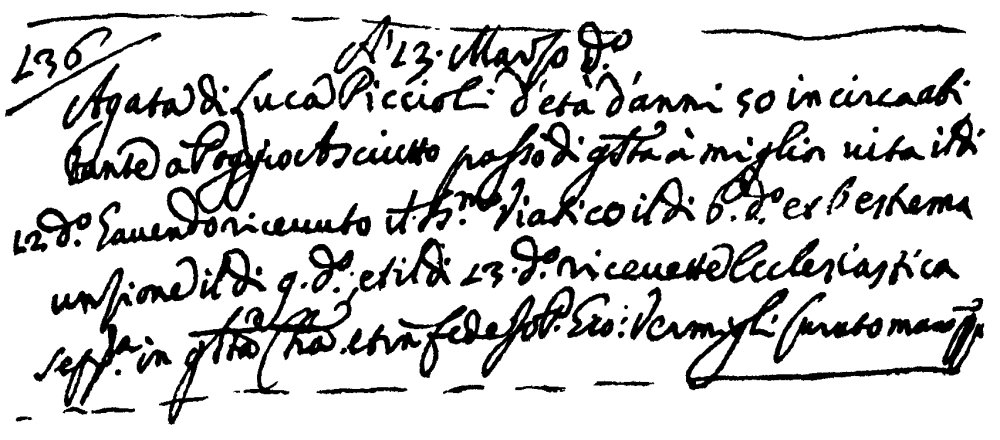 136
A' 13. Marzo d.o
Agata di Luca Piccioli d'età d'anni 50 in circa abi
tante a Poggio Asciutto passò di qsta à miglior uita il dì
12 d.o Et auendo riceuuto il SS.mo Viatico il dì 6. d.o et l'estrema
unzione il dì 9. d.o, et il dì 13. d.o riceuette Ecclesiastica
sepp.a in qsta Chã. et in fede Io P. Gio: Vermigli Curato mano pp